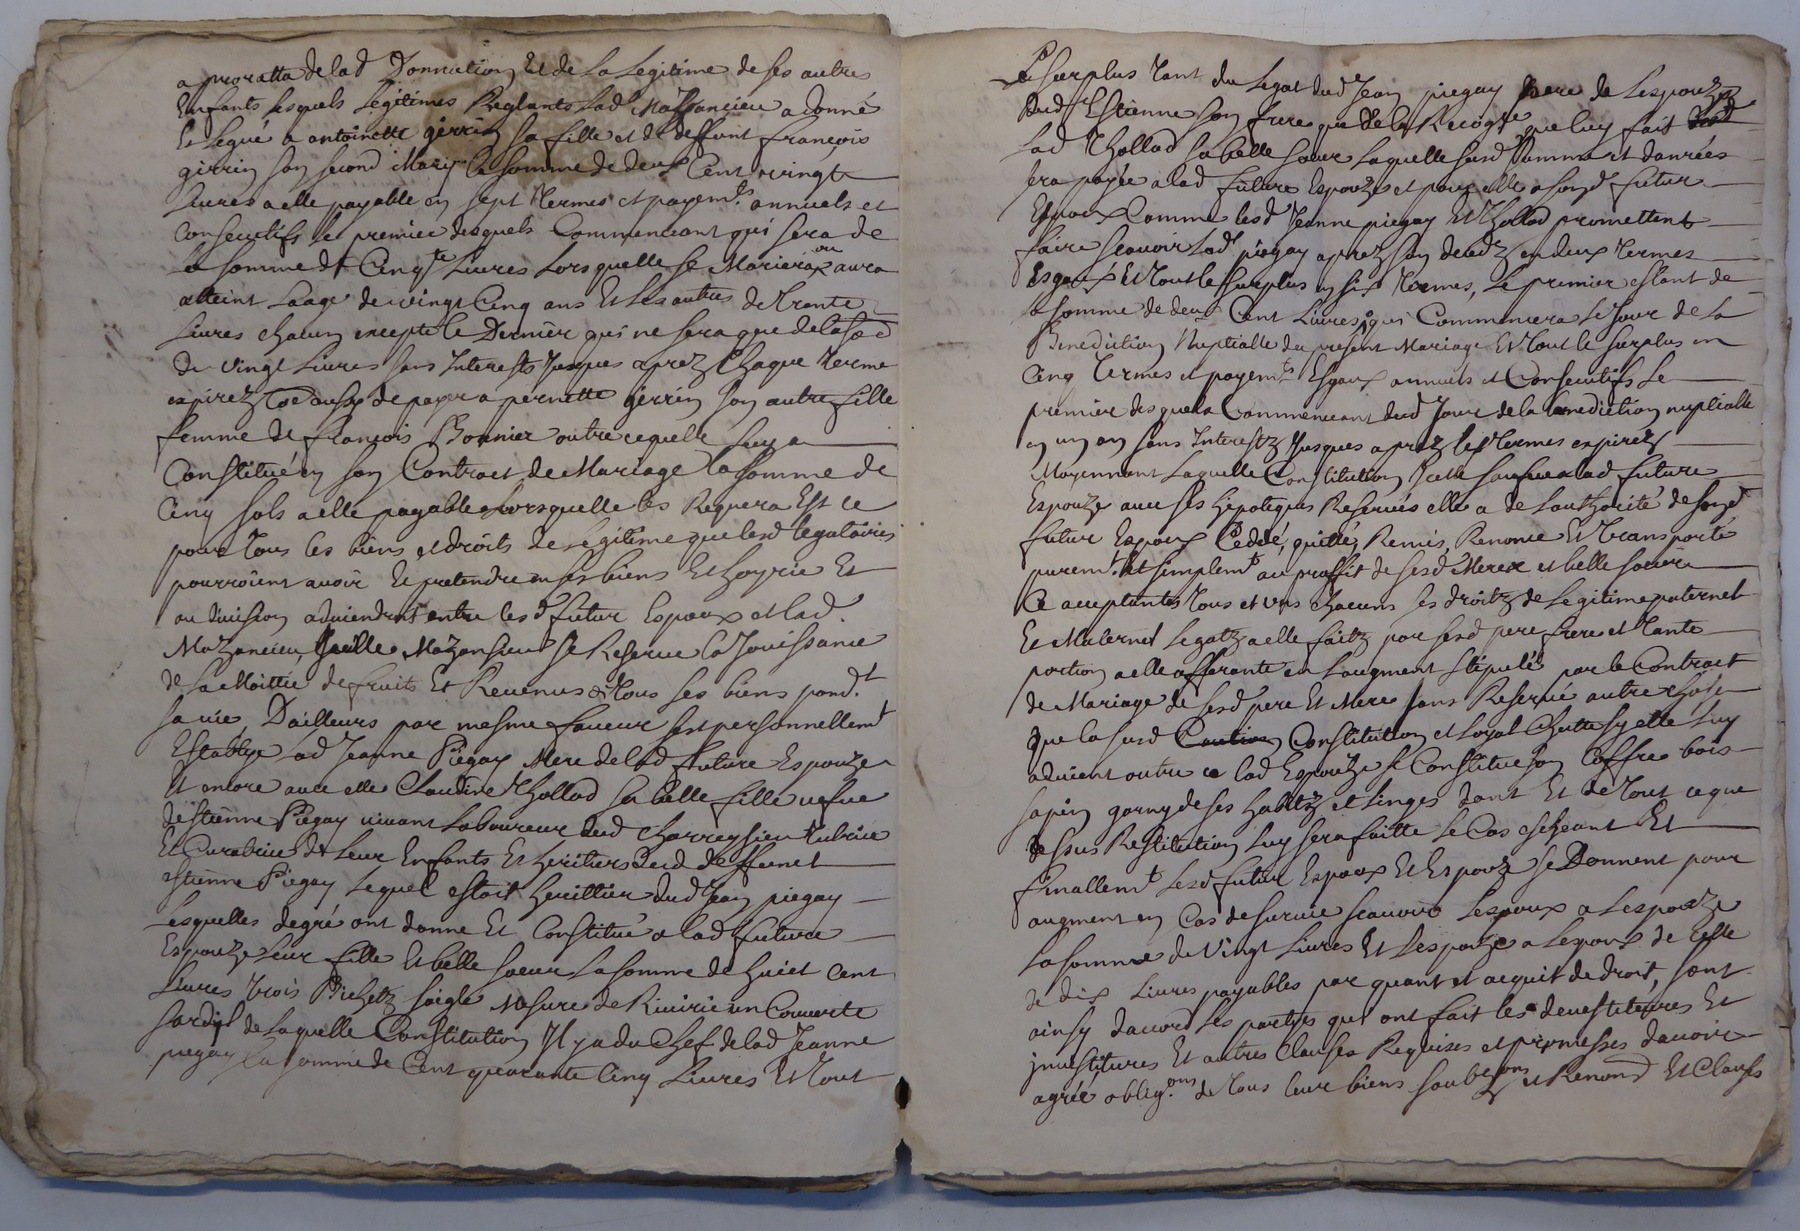 a proratta de lad Donnation Et de La Legitime de ses autres
Enfants lesquels Legitimes Reglants Lad.e Mazancieu a donné
Et Legué a antoinette girrin sa fille et de deffunt françois
girrin son second Mary la somme de deux Cent vingt
Livres a elle payable en sept termes et payem.ts annuels et
Consecutifs le premier desquels Commencant qui sera de
la somme de Cinq.te Livres Lors quelle se Mariera ou aura
atteint Laage de vingt Cinq ans Et Les autres de Trente
Livres chacun excepté le Dernier qui ne sera que de
de vingt Livres sans Interests Jusques aprez Chaque terme
expirez aussy de payer a pernette girrin son autre fille
femme de françois Bonnier outre ce quelle Luy a
Constitué en son Contract de Mariage la somme de
Cinq sols a elle payable Lorsquelle les Requera Est ce
pour tous les biens et droits de Légitime que lesd Legataires
pourroient avoir Et pretendre en ses biens Et hoyrie Et
ou division adviendroit entre lesd futur Espoux et lad.
Mazancieu, Mazancieu se Reserve la Jouissance
de la Moittié de fruits Et Revenus de tous ses biens pend.t
sa vie, D'ailleurs par mesme faveur sest personnellem.t
Establye lad Jeanne Piegay Mere de lad future Espouze
Et encore avec elle Claudine Thollad sa belle fille vefve
destienne Piegay vivant Laboureur dud tutrice
Et Curatrice de Leur Enfants Et heritiers dud deffunct
estienne Piegay Lequel estoit heritier dud Jean piegay
lesquelles degré ont donné Et Constitué a lad future
Espouze leur fille Et belle soeur La somme de huict cent
Livres trois Bichetz soigle Mesure de Rivirie un Couverte
de laquelle Constitution Il y a du Chef de lad Jeanne
piegay la somme de Cent quarante Cinq Livres Et tout
Le surplus tant du Legat dud Jean piegay pere de Lespouze
dud Estienne son frere que de la que luy fait
Lad Thollad sa belle soeur Laquelle susd somme et danrées
sera payée a lad future Espouze et pour elle a sond futur
Espoux Comme lesd Jeanne piegay Et Thollad promettent
faire scavoir Lad piegay aprez son deced en deux termes
Esgaux Et tout le surplus en six termes, Le premier estant de
la somme de deux Cent Livres qui Commencera le Jour de La
Benediction Nuptialle du present Mariage Et tout le surplus en
Cinq termes et payem.ts Esgaux annuels et Consecutifs Le
premier desquels Commencant dud Jour de la benediction nuptialle
en un an sans Interestz Jusques aprez les termes expirez
Moyennant Laquelle Constitution lad future
Espouze avec ses hipoteques Reservés elle a de Lauthorité de sond
futur Espoux Cédé, quitté, Remis, Renoncé Et transporté
purem.t Et simplem.t au proffit de sesd Mere et belle soeur
Ce acceptantes tous et uns chacuns ses droitz de Legitime paternel
Et Maternel Legatz a elle faitz par sesd pere frere et tante
portion a elle afferante en Laugment stipulé par le Contract
de Mariage de sesd pere Et Mere sans Reserve autre chose
que la susd Constitution et Loyal Chutte sy elle Luy
advient outre ce lad Espouze se Constitue son Coffre bois
sapin garny de ses habitz et Linges dont Et de tout ce que
dessus Restitution Luy sera faitte le Cas escheant Et
finallem.t Lesd futur Espoux Et Espouze se Donnent pour
augment en Cas de survie scavoir Lespoux a Lespouze
La somme de Vingt Livres Et Lespouze a Lespoux de Celle
de dix Livres payables par quant et acquit de droit, sont
ainsy daccord Les partyes qui ont fait les devestitures Et
jnvestitures Et autres Clauses Requises et promesses davoir
agrée oblig.ons de tous leur biens soub.ons et Renond Et Clauses